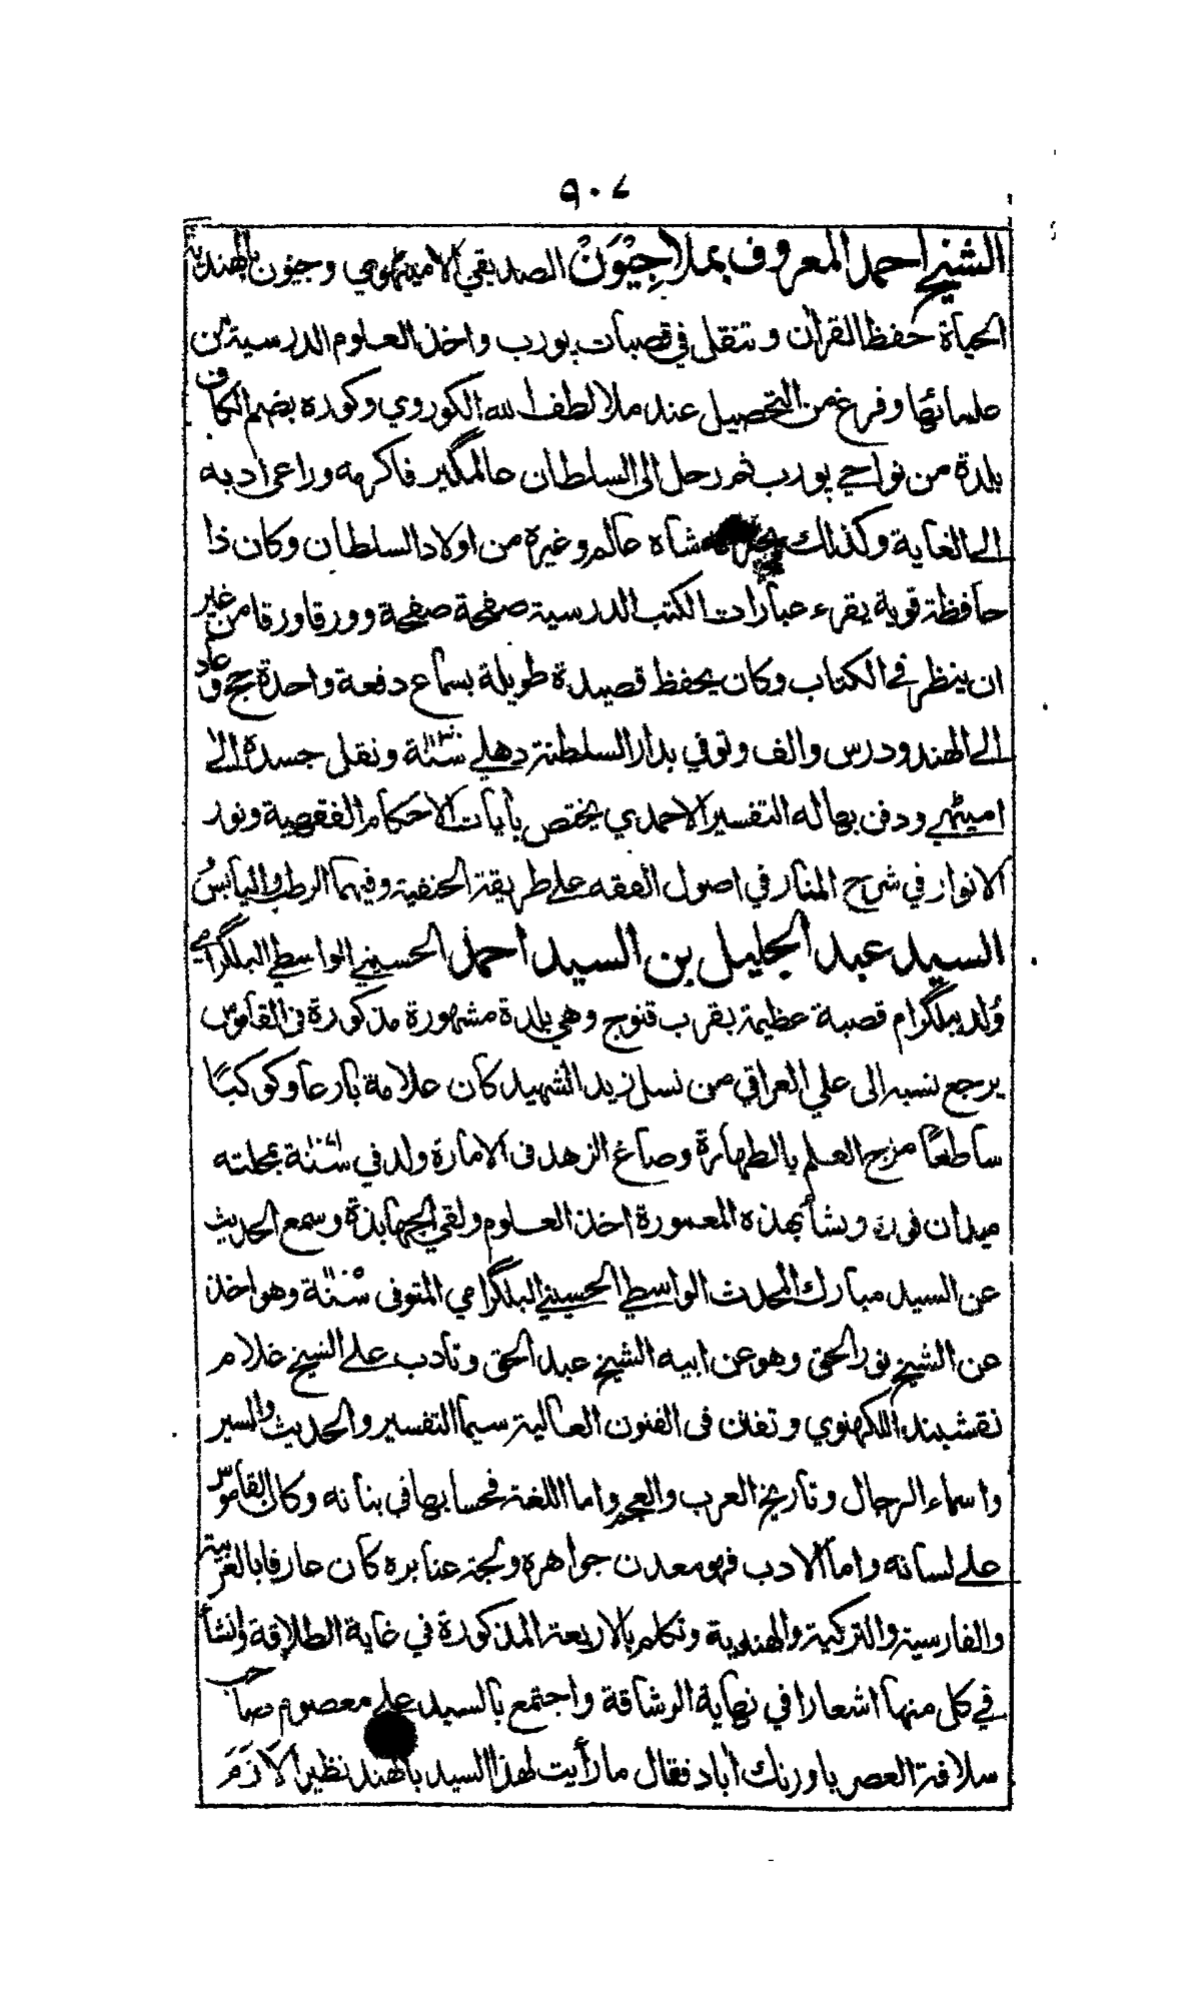 ٩٠٧
الشيخ احمد المعروف بملاجِيْوَنْ الصديقي الاميتهوي وجيون بالهندية
الحياة حفظ القرأن وتنقل في قصبات پورب واخذ العلوم الدرسية من
علمائها وفرغ من التحصيل عند ملا لطف الله الكوروي وكوره بضم الكاف
بلدة من نواحي پورب ثم رحل الى السلطان عالمگير فاكرمه وراعى ادبه
الى الغاية وكذلك شاه عالم وغيره من اولاد السلطان وكان ذا
حافظة قوية يقرء عبارات الكتب الدرسية صفحة صفحة وورقا ورقا من غير
ان ينظر في الكتاب وكان يحفظ قصيدة طويلة بسماع دفعة واحدة حج وعاد
الى الهند ودرس والف وتوفي بدار السلطنة دهلي سنة ونقل جسده الى
اميتهي ودفن بها له التفسير الاحمدي يختص بأيات الاحكام الفقهية ونور
الانوار في شرح المنار في اصول الفقه على طريقة الحنفية وفيهما الرطب واليابسُ
السيد عبد الجليل بن السيد احمد الحسيني الواسطي البلگرامي
وُلد ببلگرام قصبة عظيمة بقرب قنوج وهي بلدة مشهورة مذكورة في القاموس
يرجع نسبه الى علي العراقي من نسل زيد الشهيد كان علامة بارعا وكوكبًا
ساطعًا مزج العلم بالطهارة وصاغ الزهد في الامارة ولد في سنة بمحلته
ميدان فوره ونشأ بهذه المعمورة اخذ العلوم ولقي الجهابذة وسمع الحديث
عن السيد مبارك المحدث الواسطي الحسيني البلگرامي المتوفى سنة وهو اخذ
عن الشيخ نور الحق وهو عن ابيه الشيخ عبد الحق وتادب على الشيخ غلام
نقشبند اللكهنوي وتفنن فى الفنون العالية سيما التفسير والحديث والسير
واسماء الرجال وتاريخ العرب والعجم واما اللغة فحسابها في بنانه وكان القاموس
على لسانه واما الادب فهو معدن جواهره ولجة عنابره كان عارفا بالعربية
والفارسية والتركية والهندية وتكلم بالاربعة المذكورة في غاية الطلاقة وانشأ
في كل منها اشعارا في نهاية الرشاقة واجتمع بالسيد علي معصوم صاحب
سلافة العصر باورنك أباد فقال ما رأيت لهذا السيد بالهند نظيرا لازَمَ